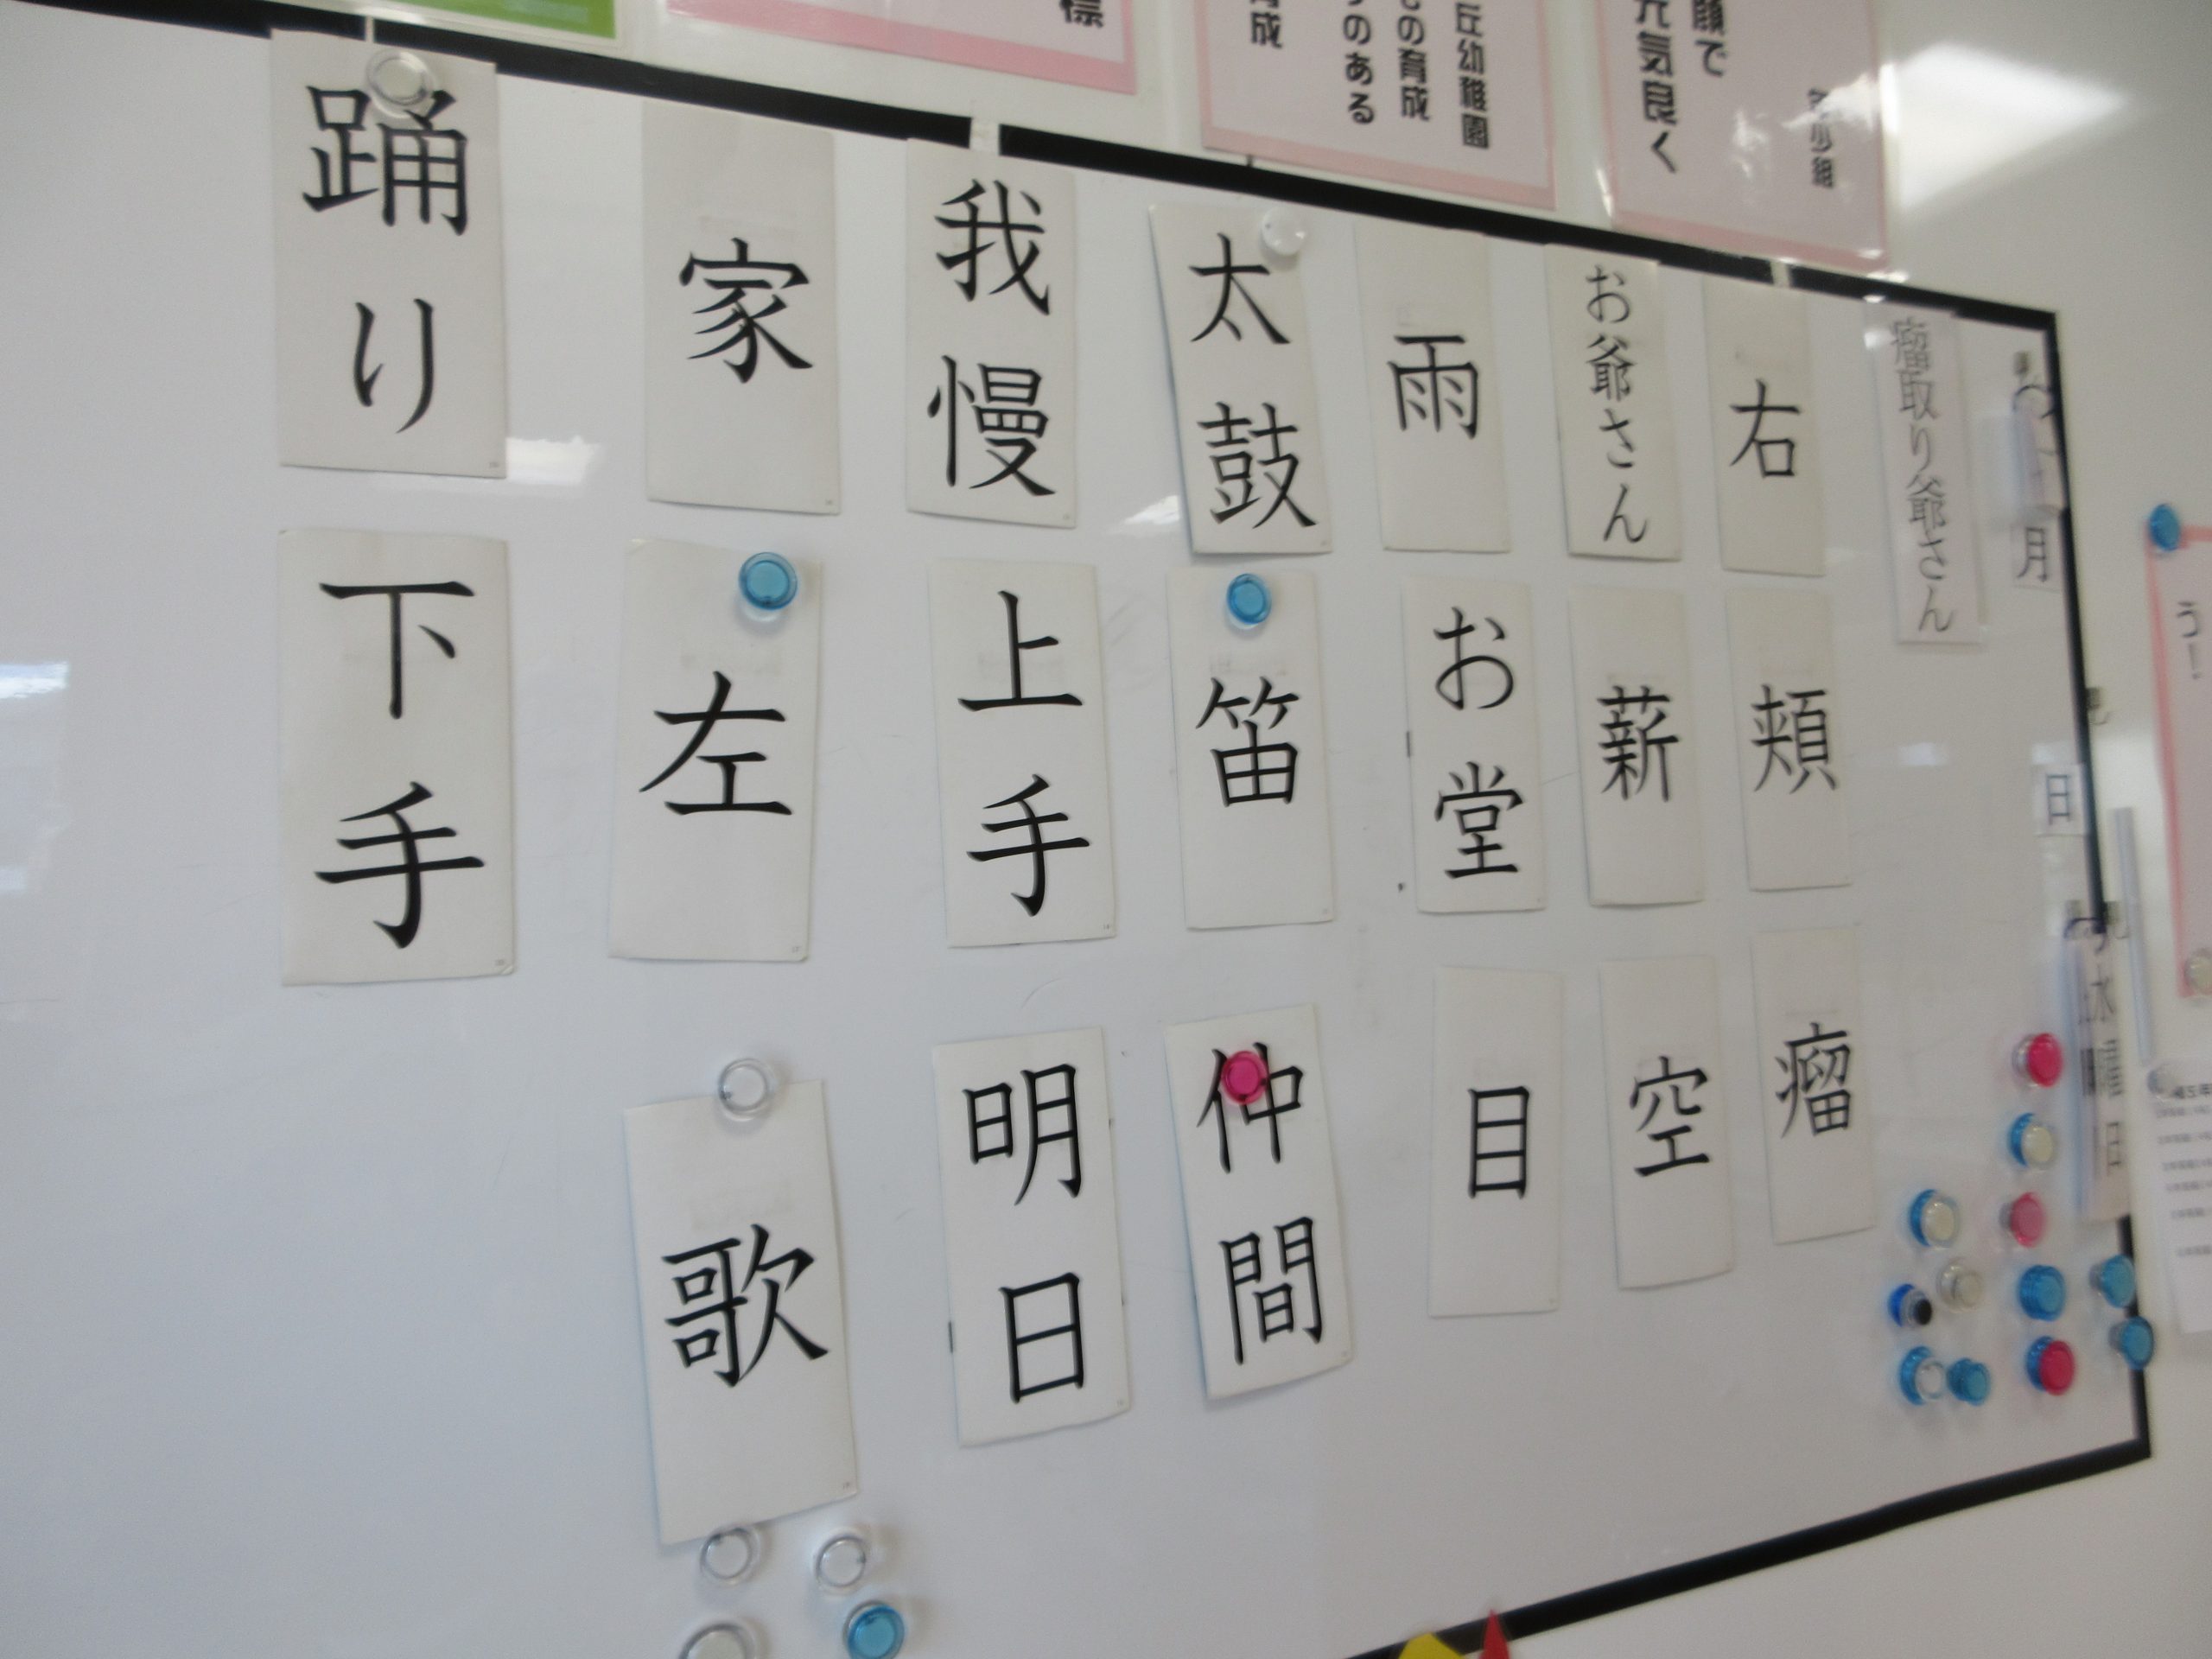 瘤取り爺さん
右
頬
瘤
お爺さん
薪
空
雨
お堂
目
太鼓
笛
仲間
我慢
上手
明日
家
左
歌
踊り
下手
月
日
日
う!
顔で
元気良く
丘幼稚園
の育成
のある
育成
標